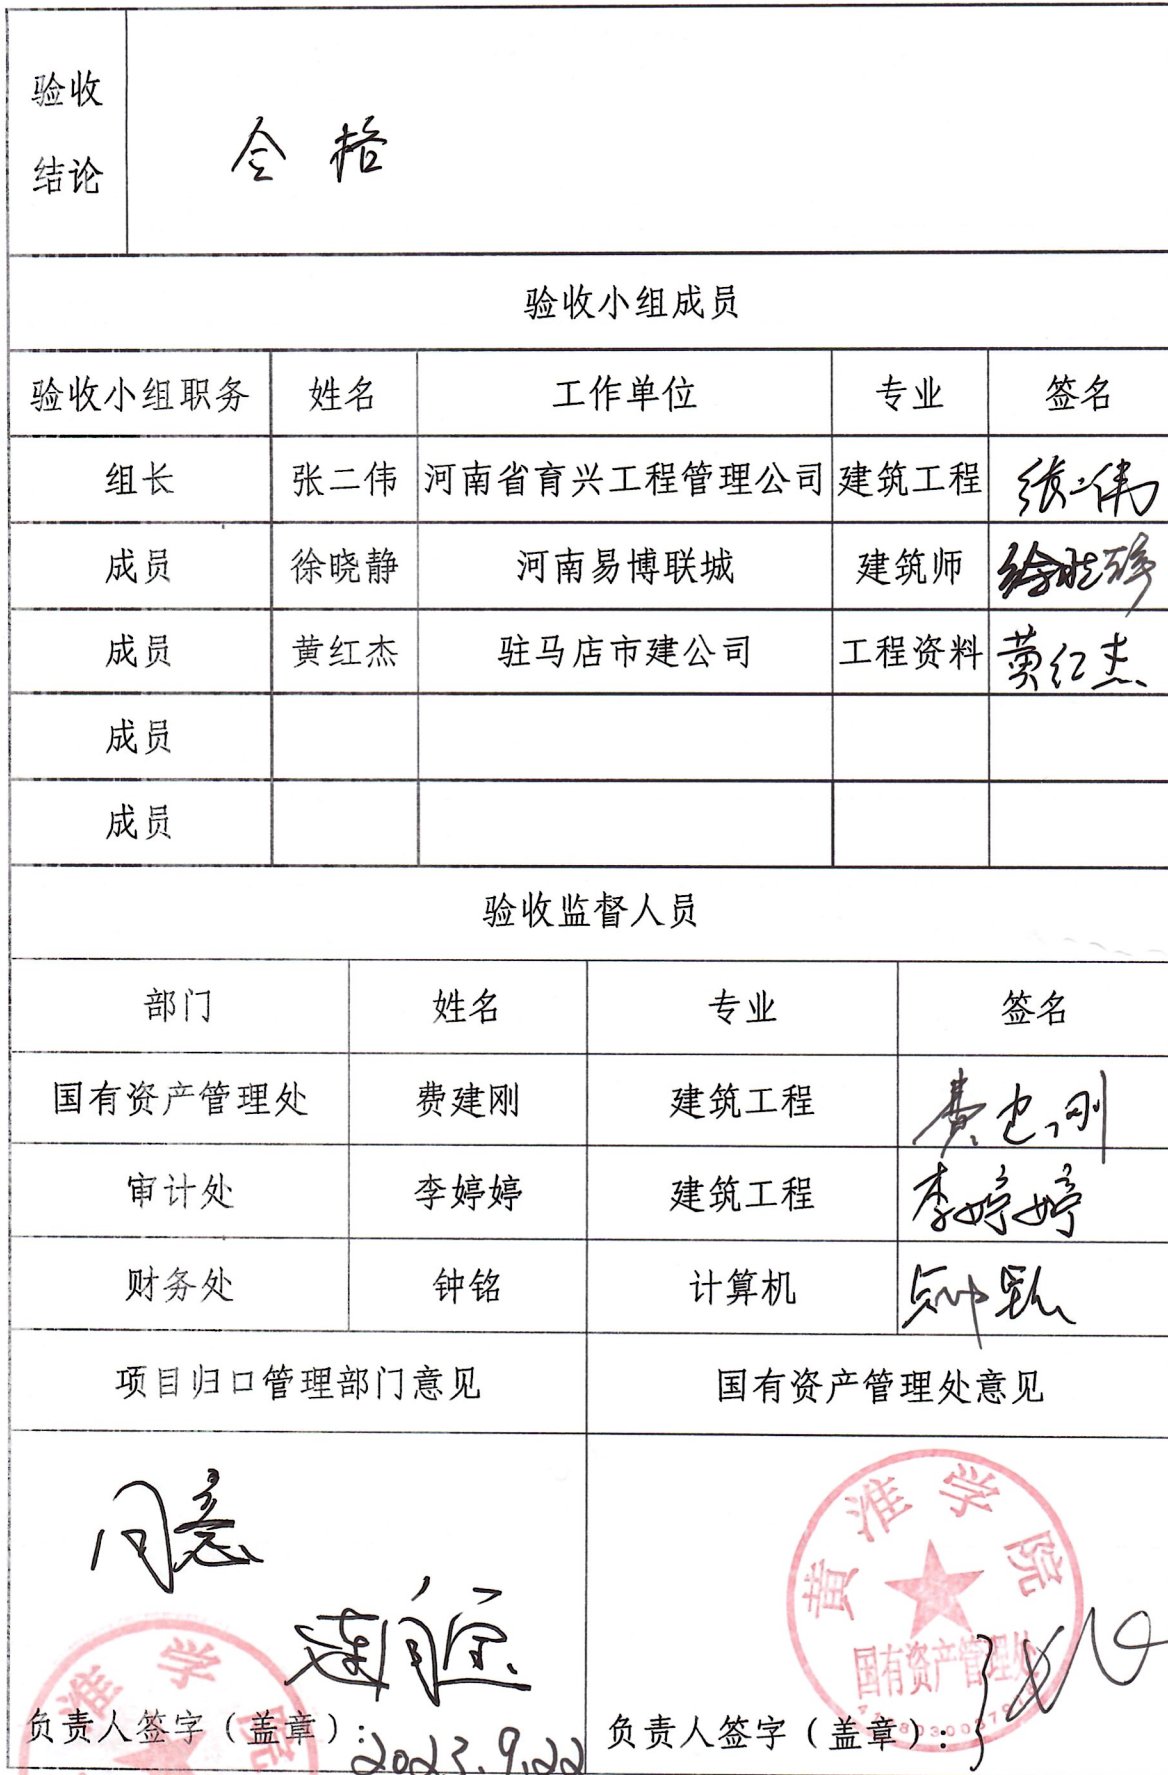 验收
结论
合格
验收小组成员
验收小组职务 姓名 工作单位 专业 签名
组长 张二伟 河南省育兴工程管理公司 建筑工程 张二伟
成员 徐晓静 河南易博联城 建筑师 徐晓静
成员 黄红杰 驻马店市建公司 工程资料 黄红杰
成员
成员
验收监督人员
部门 姓名 专业 签名
国有资产管理处 费建刚 建筑工程 费建刚
审计处 李婷婷 建筑工程 李婷婷
财务处 钟铭 计算机 钟铭
项目归口管理部门意见 国有资产管理处意见
同意
黄淮学院
国有资产管理处
淮学院
负责人签字（盖章）： 负责人签字（盖章）：
2023.9.22